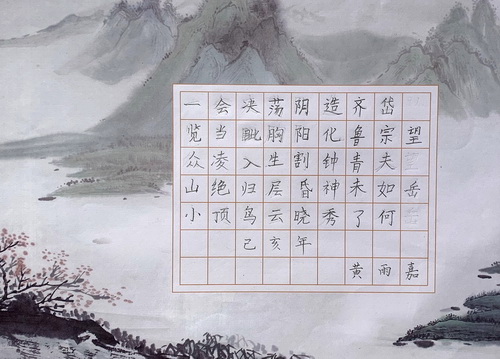 望岳
岱宗夫如何
齐鲁青未了
造化钟神秀
阴阳割昏晓
荡胸生层云
决眦入归鸟
会当凌绝顶
一览众山小
己亥年
黄雨嘉